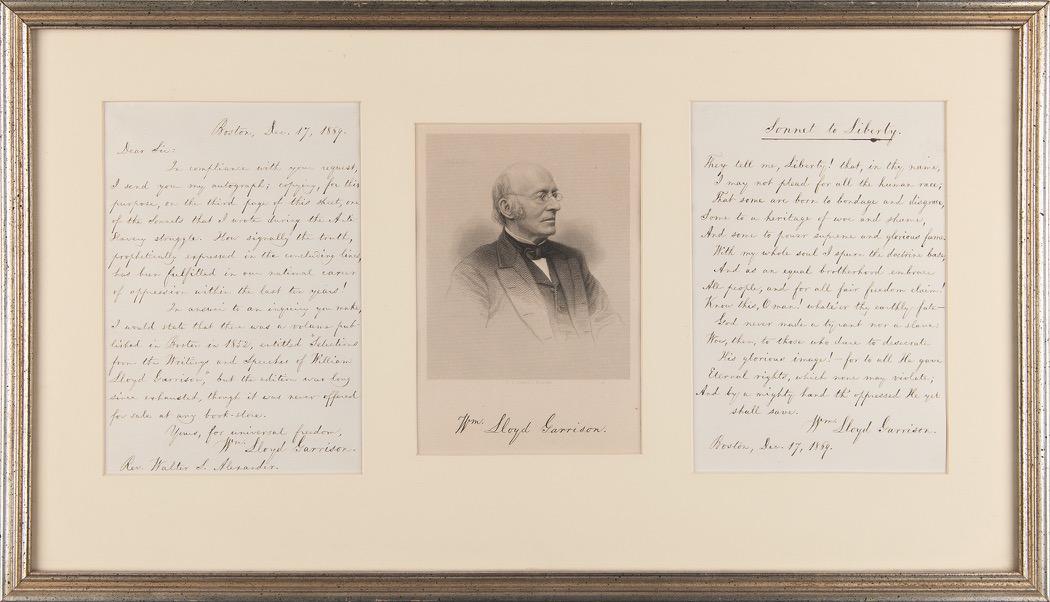 Boston, Dec. 17, 1869.
Dear Sir:
In compliance with your request,
I send you my autograph; copying, for this
purpose, on the third page of this sheet, one
of the Sonnets that I wrote during the Anti-
Slavery struggle. How signally the truth,
prophetically expressed in the concluding lines,
has been fulfilled in our national career
of oppression within the last ten years!
In answer to an inquiry you make,
I would state that there was a volume pub-
lished in Boston in 1852, entitled "Selections
from the Writings and Speeches of William
Lloyd Garrison," but the edition was long
since exhausted, though it was never offered
for sale at any book-store.
Yours, for universal freedom,
Wm. Lloyd Garrison.
Rev. Walter S. Alexander.
Wm. Lloyd Garrison.
Sonnet to Liberty.
They tell me, Liberty! that, in thy name,
I may not plead for all the human race;
That some are born to bondage and disgrace,
Some to a heritage of woe and shame,
And some to power supreme and glorious fame.
With my whole soul I spurn the doctrine base,
And as an equal brotherhood embrace
All people, and for all fair freedom claim!
Know this, O man! whate'er thy earthly fate—
God never made a tyrant nor a slave:
Woe, then, to those who dare to desecrate
His glorious image! – for to all He gave
Eternal rights, which none may violate;
And by a mighty hand th' oppressed He yet
shall save.
Wm. Lloyd Garrison.
Boston, Dec. 17, 1869.